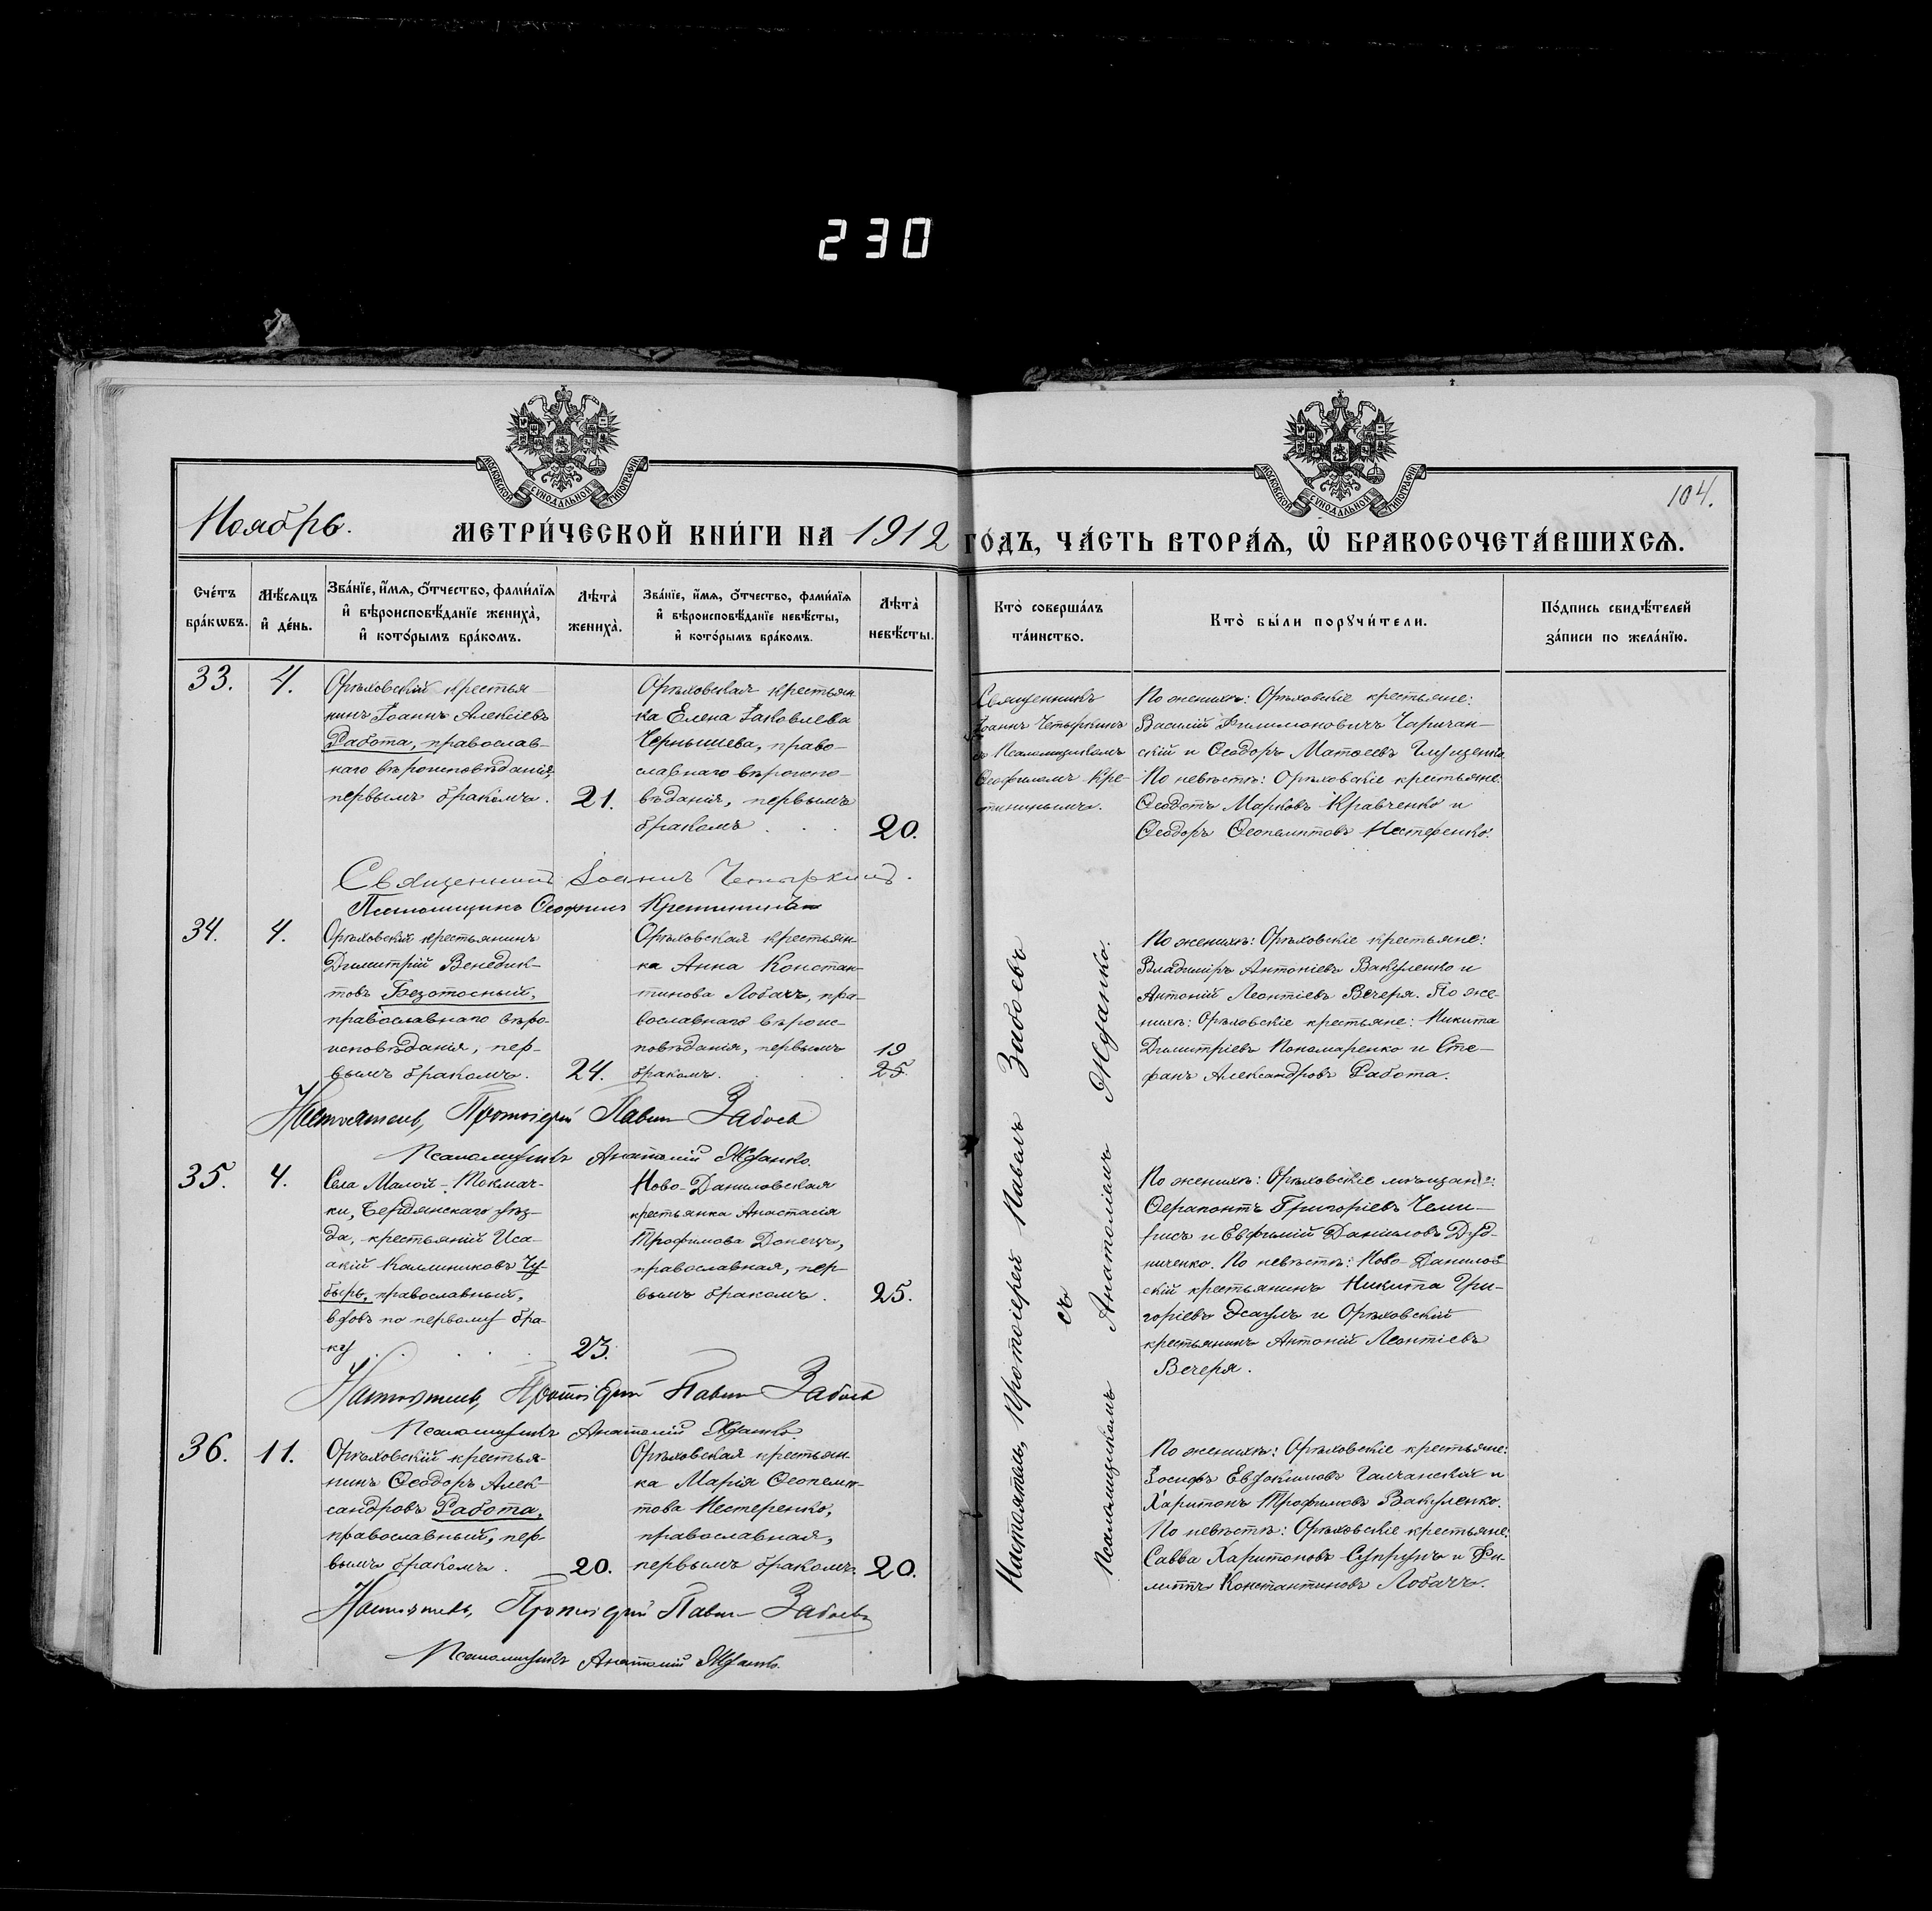 230
МОСКОВСКОЙ СУНОДАЛЬНОЙ ТИПОГРАФІИ
МОСКОВСКОЙ СУНОДАЛЬНОЙ ТИПОГРАФІИ
104.
Ноябрь.
МЕТРИ́ЧЕСКОЙ КНИ́ГИ НА 1912 ГО́ДЪ, ЧА́СТЬ ВТОРА́Ѧ, Ѽ БРАКОСОЧЕТА́ВШИХСѦ.
Сче́тъ бра́кѡвъ.
Мѣ́сѧцъ и҆ де́нь.
Зва́нїе, и҆́мѧ, ѻ҆́тчество, фами́лїѧ и҆ вѣроисповѣ́данїе жениха̀, и҆ кото́рымъ бра́комъ.
Лѣ́та̀ жениха̀.
Зва́нїе, и҆́мѧ, ѻ҆́тчество, фами́лїѧ и҆ вѣроисповѣ́данїе невѣ́сты, и҆ кото́рымъ бра́комъ.
Лѣ́та̀ невѣ́сты.
Кто̀ соверша́лъ та́инство.
Кто̀ бы́ли порꙋчи́тели.
По́дпись свидѣ́телей за́писи по жела́нїю.
33.
4.
Орѣховскій крестья-
нинъ Іоаннъ Алексіевъ
Работа, православ-
наго вѣроисповѣданія,
первымъ бракомъ.
21.
Орѣховская крестьян-
ка Елена Іаковлева
Чернышева, право-
славнаго вѣроиспо-
вѣданія, первымъ
бракомъ . . .
20.
Священникъ
Іоаннъ Четыркинъ
съ Псаломщикомъ
Ѳеофиломъ Кре-
тининымъ.
По женихѣ: Орѣховскіе крестьяне:
Василій Филимоновичъ Чаричан-
скій и Ѳеодоръ Матѳеевъ Глущенко.
По невѣстѣ: Орѣховскіе крестьяне
Ѳеодотъ Марковъ Кравченко и
Ѳеодоръ Ѳеопемптовъ Нестеренко.
Священникъ Іоаннъ Четыркинъ.
Псаломщикъ Ѳеофилъ Кретининъ
34.
4.
Орѣховскій крестьянинъ
Димитрій Венедик-
товъ Безотосный,
православнаго вѣро-
исповѣданія, пер-
вымъ бракомъ.
24.
Орѣховская крестьян-
ка Анна Констан-
тинова Лобачъ, пра-
вославнаго вѣроис-
повѣданія, первымъ
бракомъ. . .
19
25.
По женихѣ: Орѣховскіе крестьяне:
Владиміръ Антоніевъ Вакуленко и
Антоній Леонтіевъ Вечеря. По же-
нихѣ: Орѣховскіе крестьяне: Никита
Димитріевъ Пономаренко и Сте-
фанъ Александровъ Работа.
Настоятель, Протоіерей Павелъ Забоевъ
Псаломщикъ Анатолій Жданко.
35.
4.
Села Малой-Токмач-
ки, Бердянскаго уѣз-
да, крестьянинъ Иса-
акій Каллиниковъ Чу-
бырь, православный,
вдовъ по первому бра-
ку . . . .
23.
Ново-Даниловская
крестьянка Анастасія
Трофимова Донецъ,
православная, пер-
вымъ бракомъ.
25.
По женихѣ: Орѣховскіе мѣщане:
Ѳерапонтъ Григоріевъ Чеми-
рисъ и Евфимій Даніиловъ Дуд-
ниченко. По невѣстѣ: Ново-Данилов-
скій крестьянинъ Никита Гри-
горіевъ Эсаулъ и Орѣховскій
крестьянинъ Антоній Леонтіевъ
Вечеря.
Настоятель, Протоіерей Павелъ Забоевъ
Псаломщикъ Анатолій Жданко.
36.
11.
Орѣховскій крестья-
нинъ Ѳеодоръ Алек-
сандровъ Работа,
православный, пер-
вымъ бракомъ.
20.
Орѣховская крестьян-
ка Марія Ѳеопемп-
това Нестеренко,
православная,
первымъ бракомъ.
20.
По женихѣ: Орѣховскіе крестьяне:
Іосифъ Евдокимовъ Галчанскій и
Харитонъ Трофимовъ Вакуленко.
По невѣстѣ: Орѣховскіе крестьяне:
Савва Харитоновъ Супрунъ и Фи-
липпъ Константиновъ Лобачъ.
Настоятель, Протоіерей Павелъ Забоевъ
Псаломщикъ Анатолій Жданко.
Настоятель, Протоіерей Павелъ Забоевъ
съ
Псаломщикомъ Анатоліемъ Жданко.